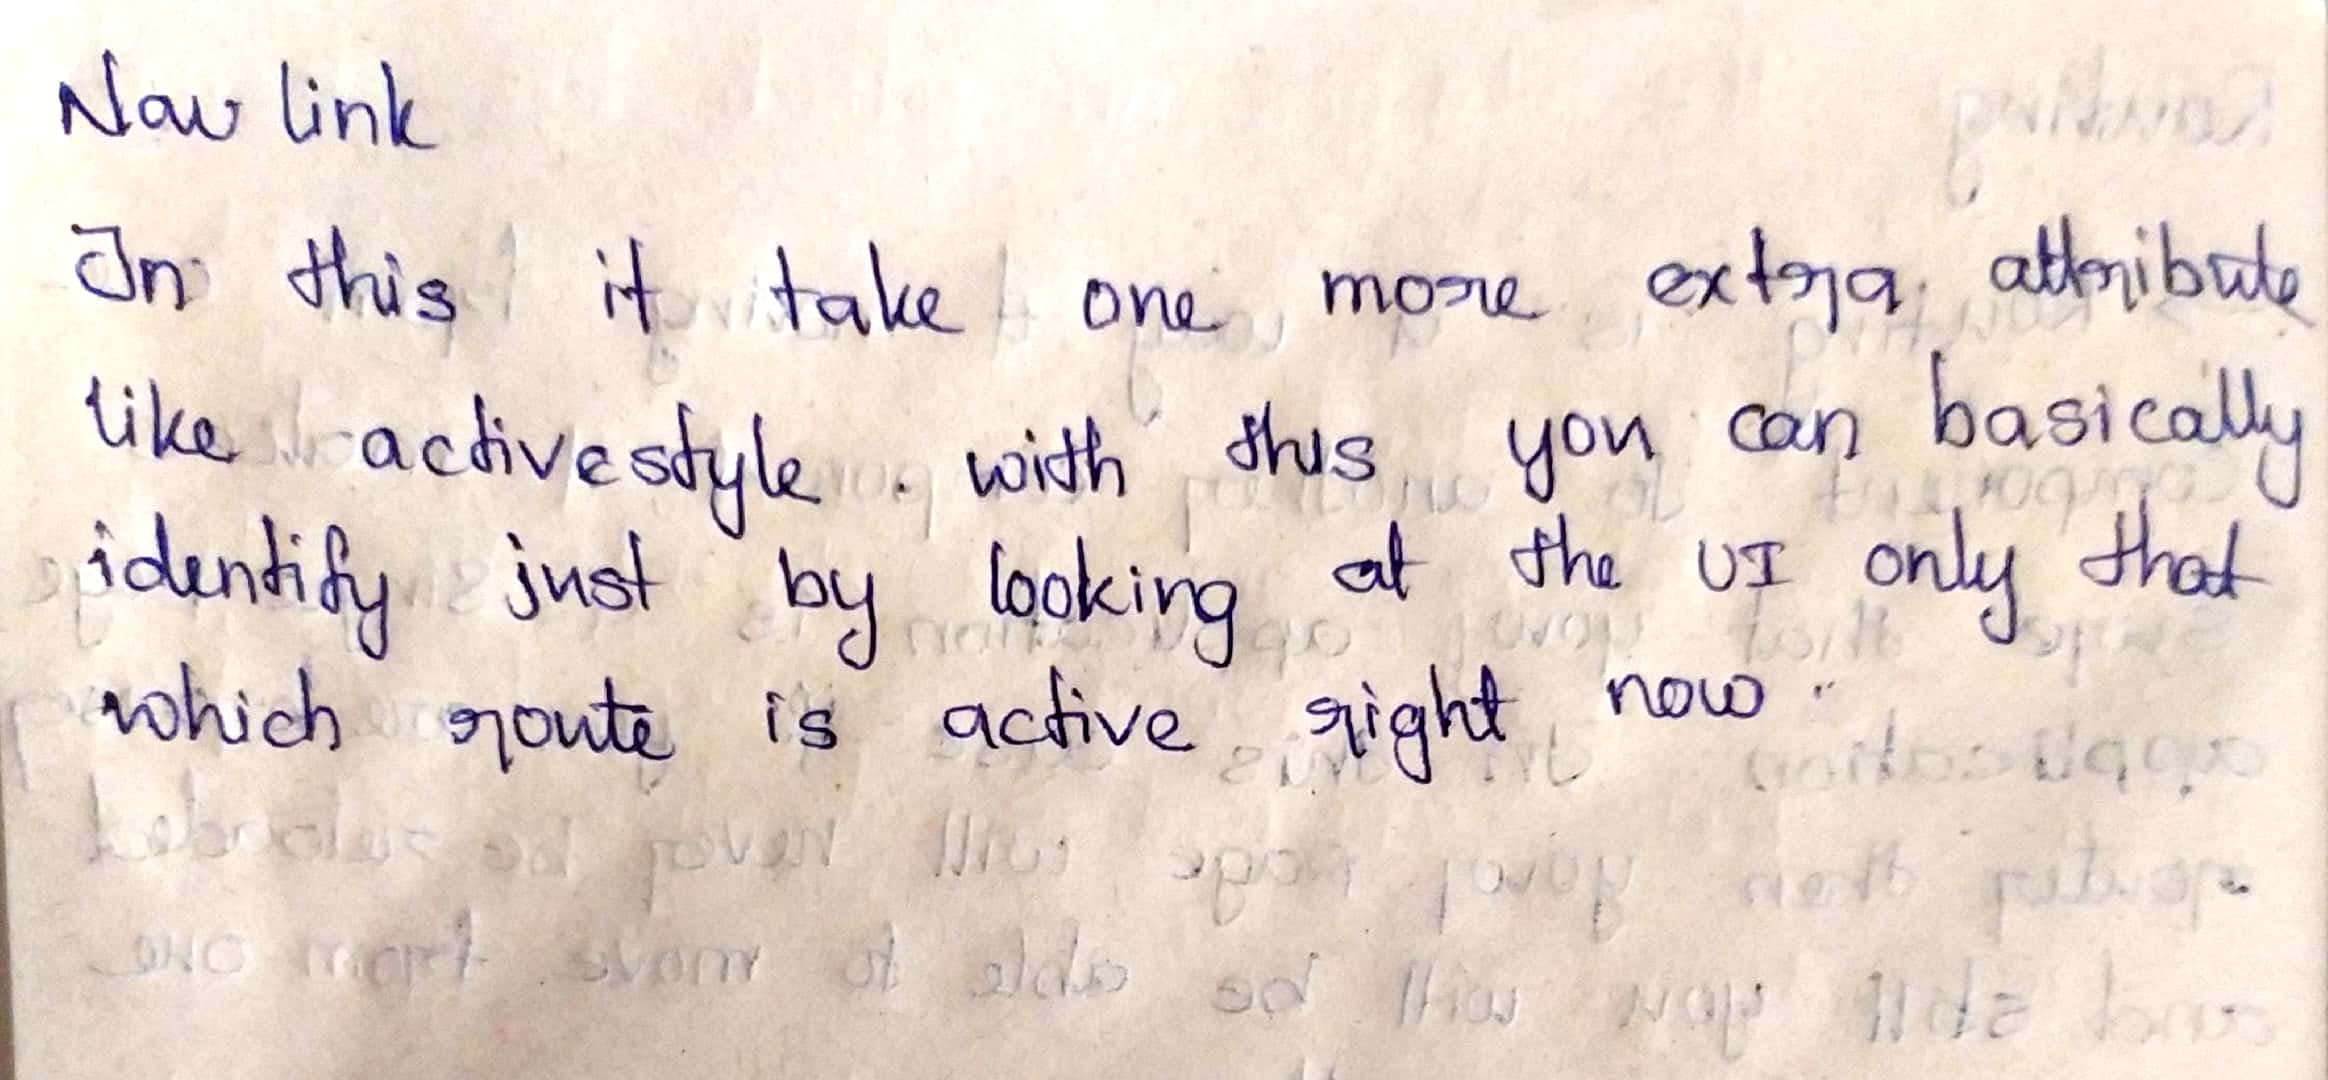 Nav link
In this it take one more extra attribute
like activestyle. with this you can basically
identify just by looking at the UI only that
which route is active right now.